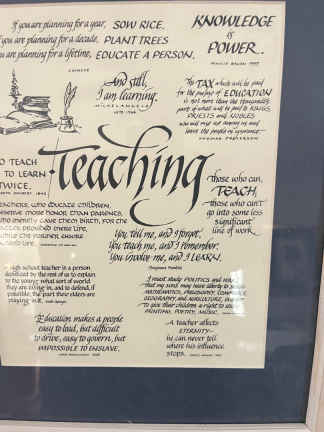 If you are planning for a year, SOW RICE.
you are planning for a decade, PLANT TREES
are planning for a lifetime, EDUCATE A PERSON.
CHINESE
KNOWLEDGE
is
POWER..
And still,
I am learning.
MICHELANGELO
The TAX which will be paid
for the purpose of EDUCATION
is not more than the thousandth
part of what will be paid to KINGS
PRIESTS and NOBLES
who will rise up among us and
leave the people in ignorance
THOMAS JEFFERSON
TO TEACH
TO LEARN
TWICE.
Teaching
those who can,
TEACH,
those who can't
go into some less
significant
line of work.
TEACHERS, who educate children,
deserve more honor than parents,
who merely gave them birth, for the
latter provided mere life,
while the former, ensure
good life.
You tell me, and I forget.
You teach me, and I remember.
You involve me, and I LEARN.
Benjamin Franklin
high school teacher is a person
deputized by the rest of us to explain
to the young what sort of world
they are living in, and to defend, if
possible, the part their elders are
playing in it.
I must study POLITICS and WAR
that my sons may have liberty to study
MATHEMATICS, PHILOSOPHY, COMMERCE
GEOGRAPHY, and AGRICULTURE,
to give their children a right to study
PAINTING, POETRY, MUSIC,
Education makes a people
easy to lead, but difficult
to drive, easy to govern, but
IMPOSSIBLE TO ENSLAVE.
A teacher affects
ETERNITY-
he can never tell
where his influence
stops.